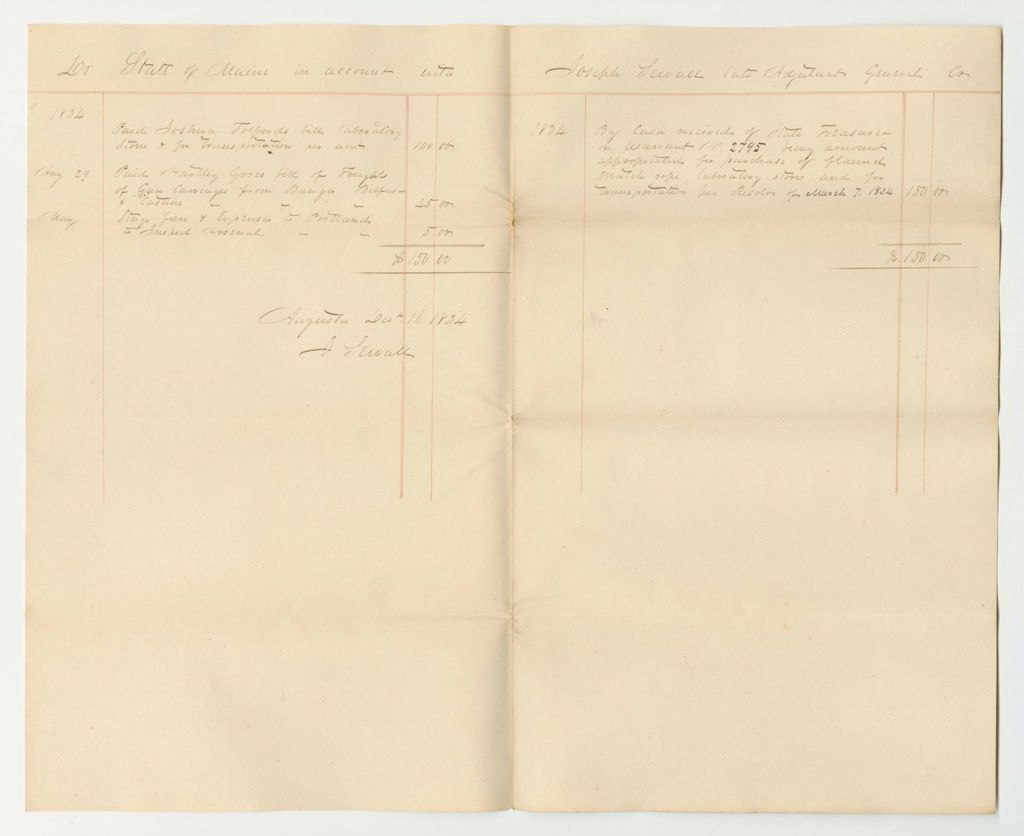 Dr State of Maine in account with
1834
Paid Joshua Tolfords bill laboratory
Stores & for transportation per acct 100 00
Aug 29 Paid Hartley Gove's bill of Freight
of Gun Carriages from Bangor, Belfast
& Castine " " " 45 00
May Stage fare & Expenses to Portland
to Inspect Arsenal - - 5 00
$ 150 00
Augusta Decr 16, 1834
J. Sewall
Joseph Sewall late Adjutant General Cr
1834 By Cash received of State Treasurer
on Warrant No 2795 being amount
appropriated for purchase of flannel
match rope, laboratory stores and for
transportation per Resolve of March 7. 1834 150 00
$ 150 00